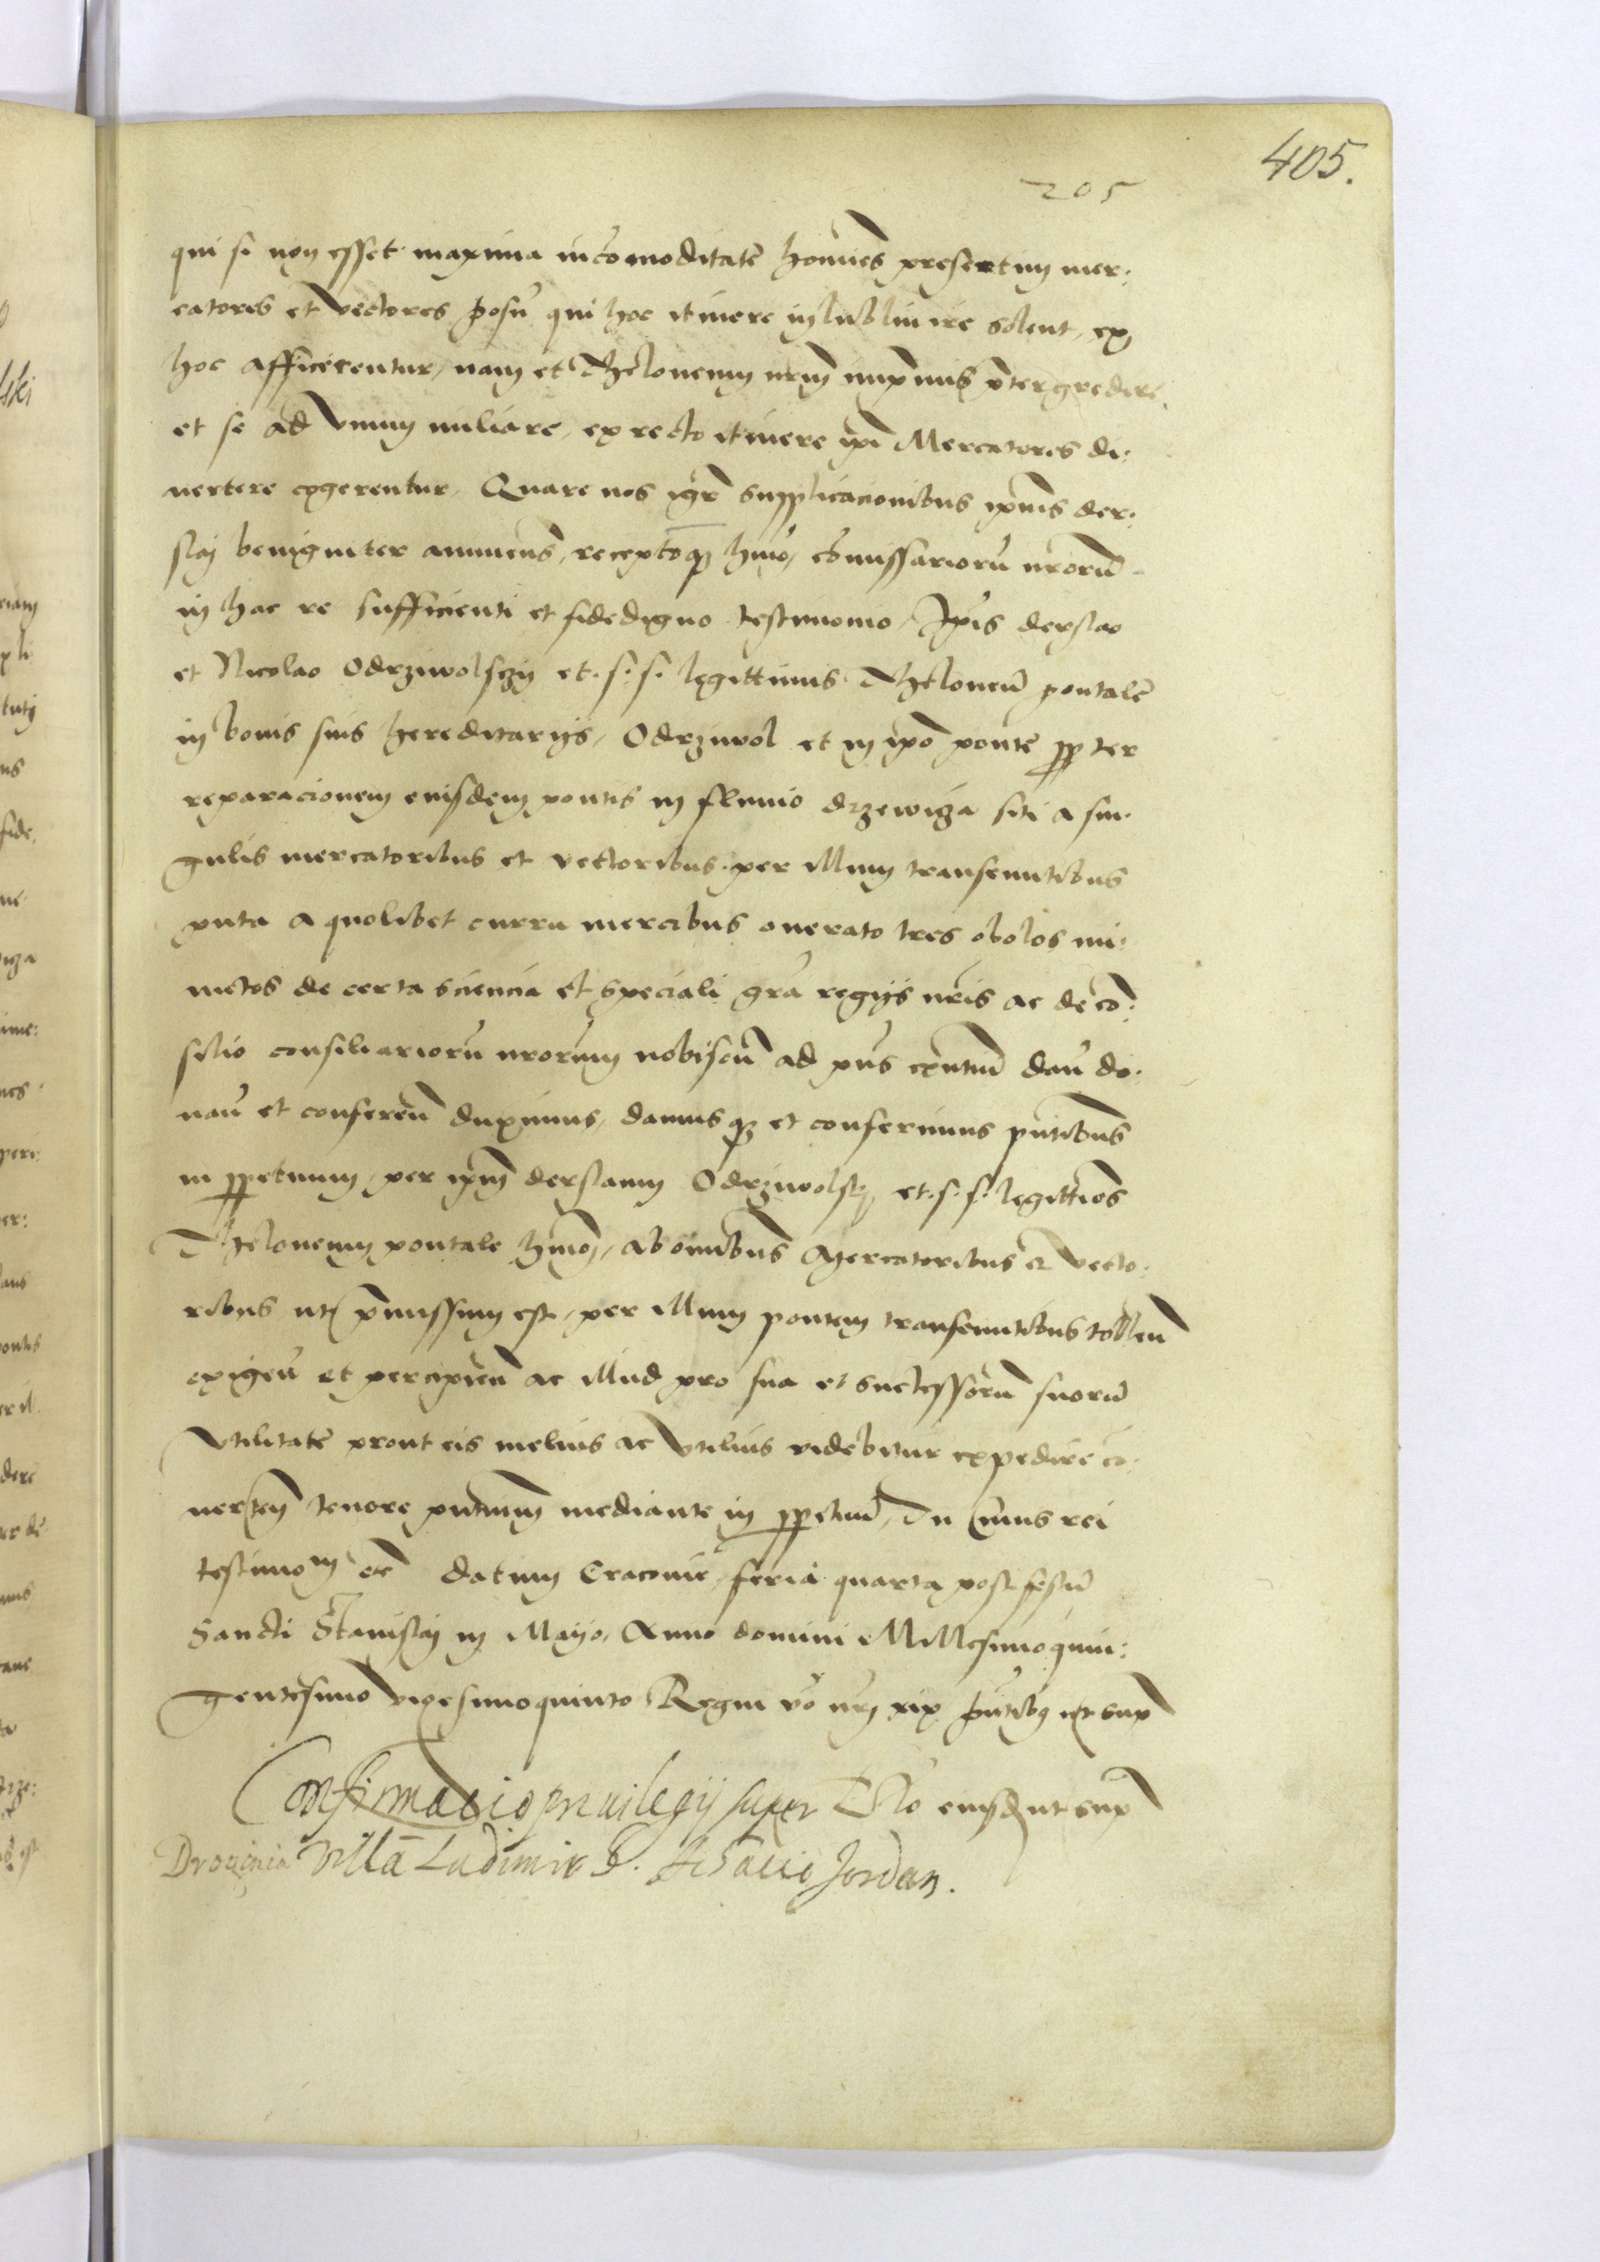 405.
205
qui si non esset maxima incōmoditate hoīnes presertim mer:
catores et vectores posn̄ qui hoc itinere in lublin ire solent, ex
hoc afficerentur, nam et Theloneum nr̄m inprimis p̄tergredere
et se ad vnum miliare, ex recto itinere ip̄i Mercatores di:
uertere cogerentur, Quare nos igr̄ supplicacionibus ip̄ius der:
slai benigniter annuen̄s, receptoq3 hmōi, cōmissariorū nr̄orū
in hac re sufficienti et fidedigno testimonio, Ip̄is derslao
et Nicolao Odrziwolsczy et. s. s. legittimis Theloneū pontale
in bonis suis hereditarijs, Odrziwol et in ip̄o ponte pp̄ter
reparacionem eiusdem pontis in fluuio drzewicza siti a sin:
gulis mercatoribus et vectoribus per illum transeuntibus
puta a quolibet curru mercibus onerato tres obolos mi:
nutos de certa sciencia et speciali gr̄a regijs nr̄is ac de cō:
silio consiliariorū nr̄orum nobiscū ad pn̄s exn̄tiū dan̄ do:
nan̄ et conferen̄ duximus, damusq3 et conferimus pn̄tibus
in pp̄etuum, per ip̄m derslaum Odrziwolsk, et. s. s. legittimos
Theloneum pontale hmōi, ab oībus Mercatoribus et vecto:
ribus uti p̄missum est, per illum pontem transeuntibus tollen̄
exigen̄ et percipien̄ ac illud pro sua et successorū suorū
vtilitate prout eis melius ac vtilius videbitur expedire cō:
uerten̄ tenore pn̄tium mediante in pp̄etuū, In cuius rei
testimoᵐ etc datum Cracovie, feria quarta post festū
Sancti Stanislai in Mayo, Anno domini Millesimoquin:
gentesimo vigesimoquinto Regni vō nr̄i xix pn̄tibq ut supͣ
Confirmacio priuilegij super
Rl̄o eiusd ut supͣ
villā Ladimir G. Jordan.